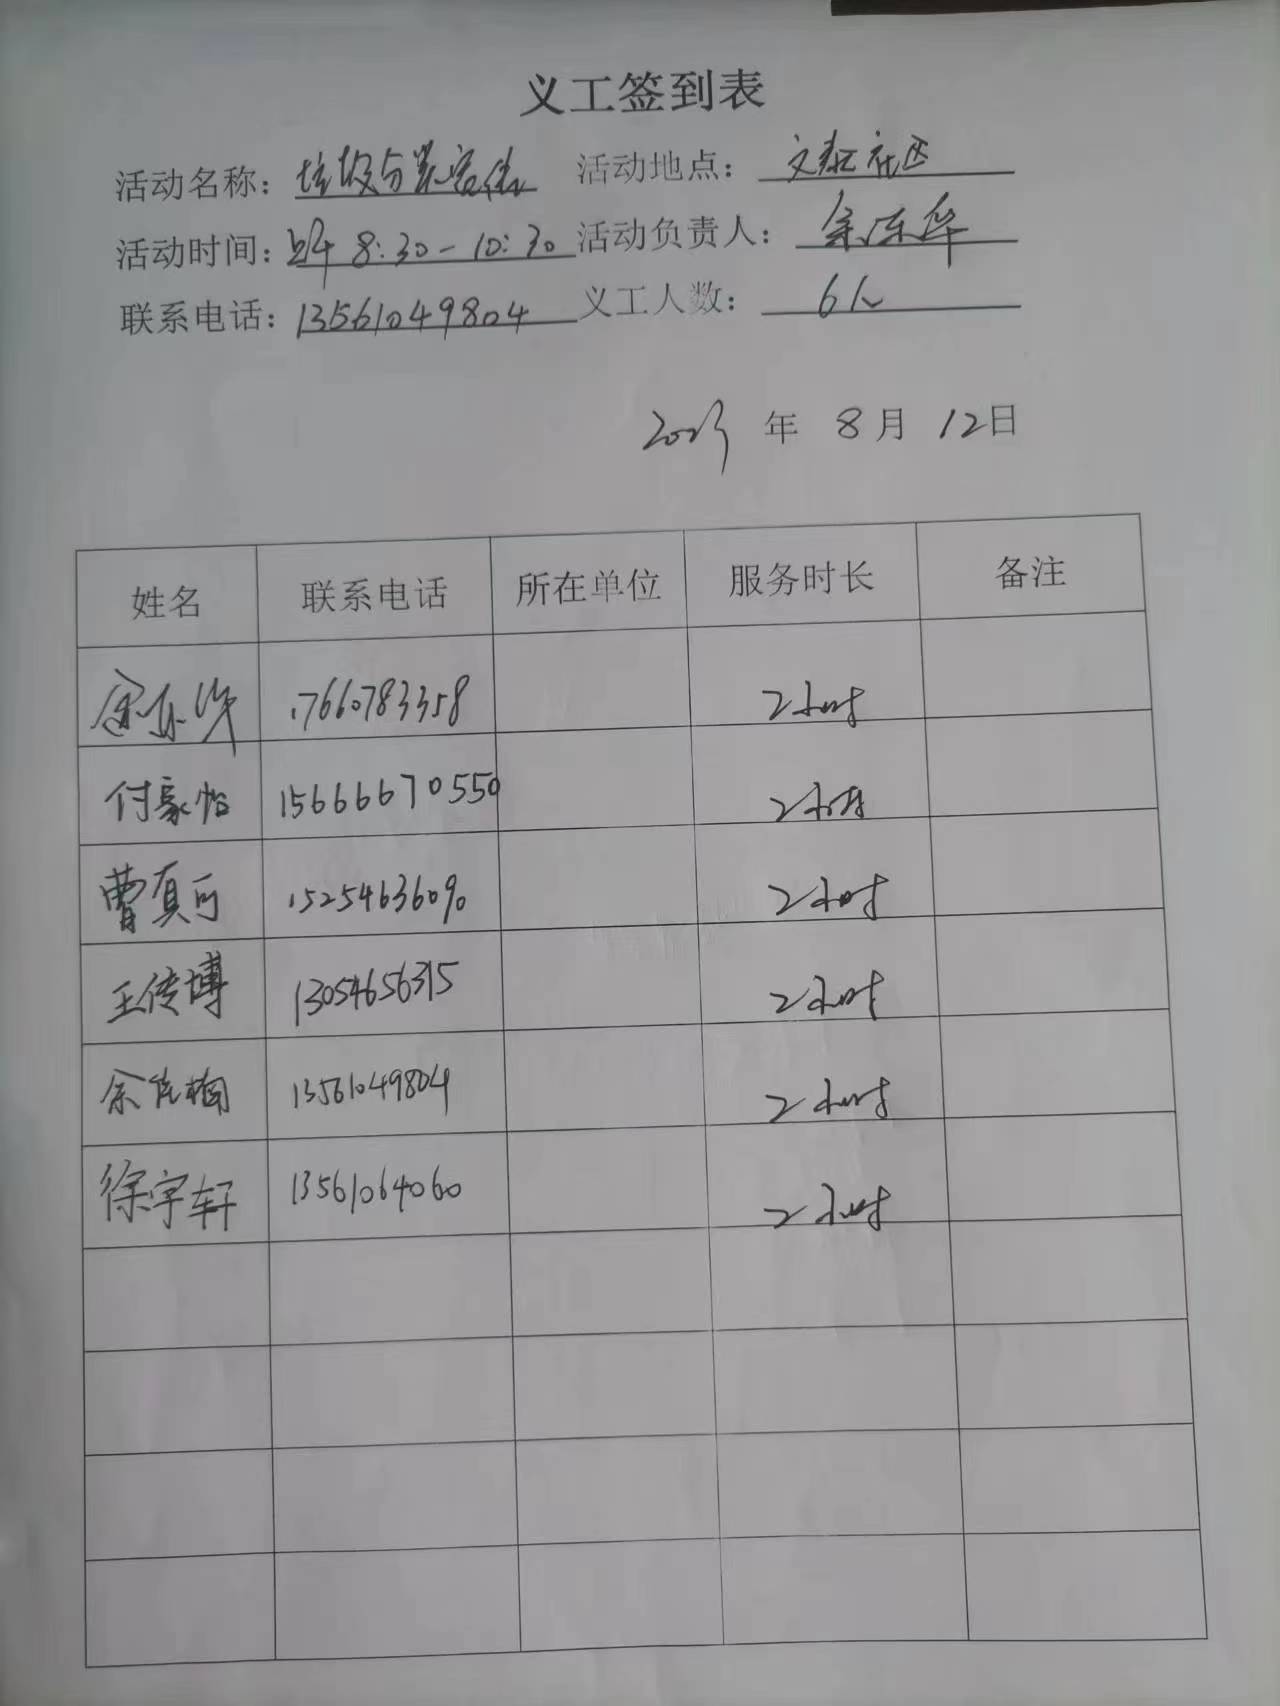 义工签到表
活动名称：垃圾分类宣传 活动地点：文泰社区
活动时间：上午 8:30-10:30 活动负责人：余庆华
联系电话：13561049804 义工人数：6人
2023 年 8 月 12 日
姓名 联系电话 所在单位 服务时长 备注
17660783358 2小时
付豪怡 15666670550 2小时
曹真可 15254636090 2小时
王传博 13054656315 2小时
余佳楠 13561049804 2小时
徐宇轩 13561064060 2小时